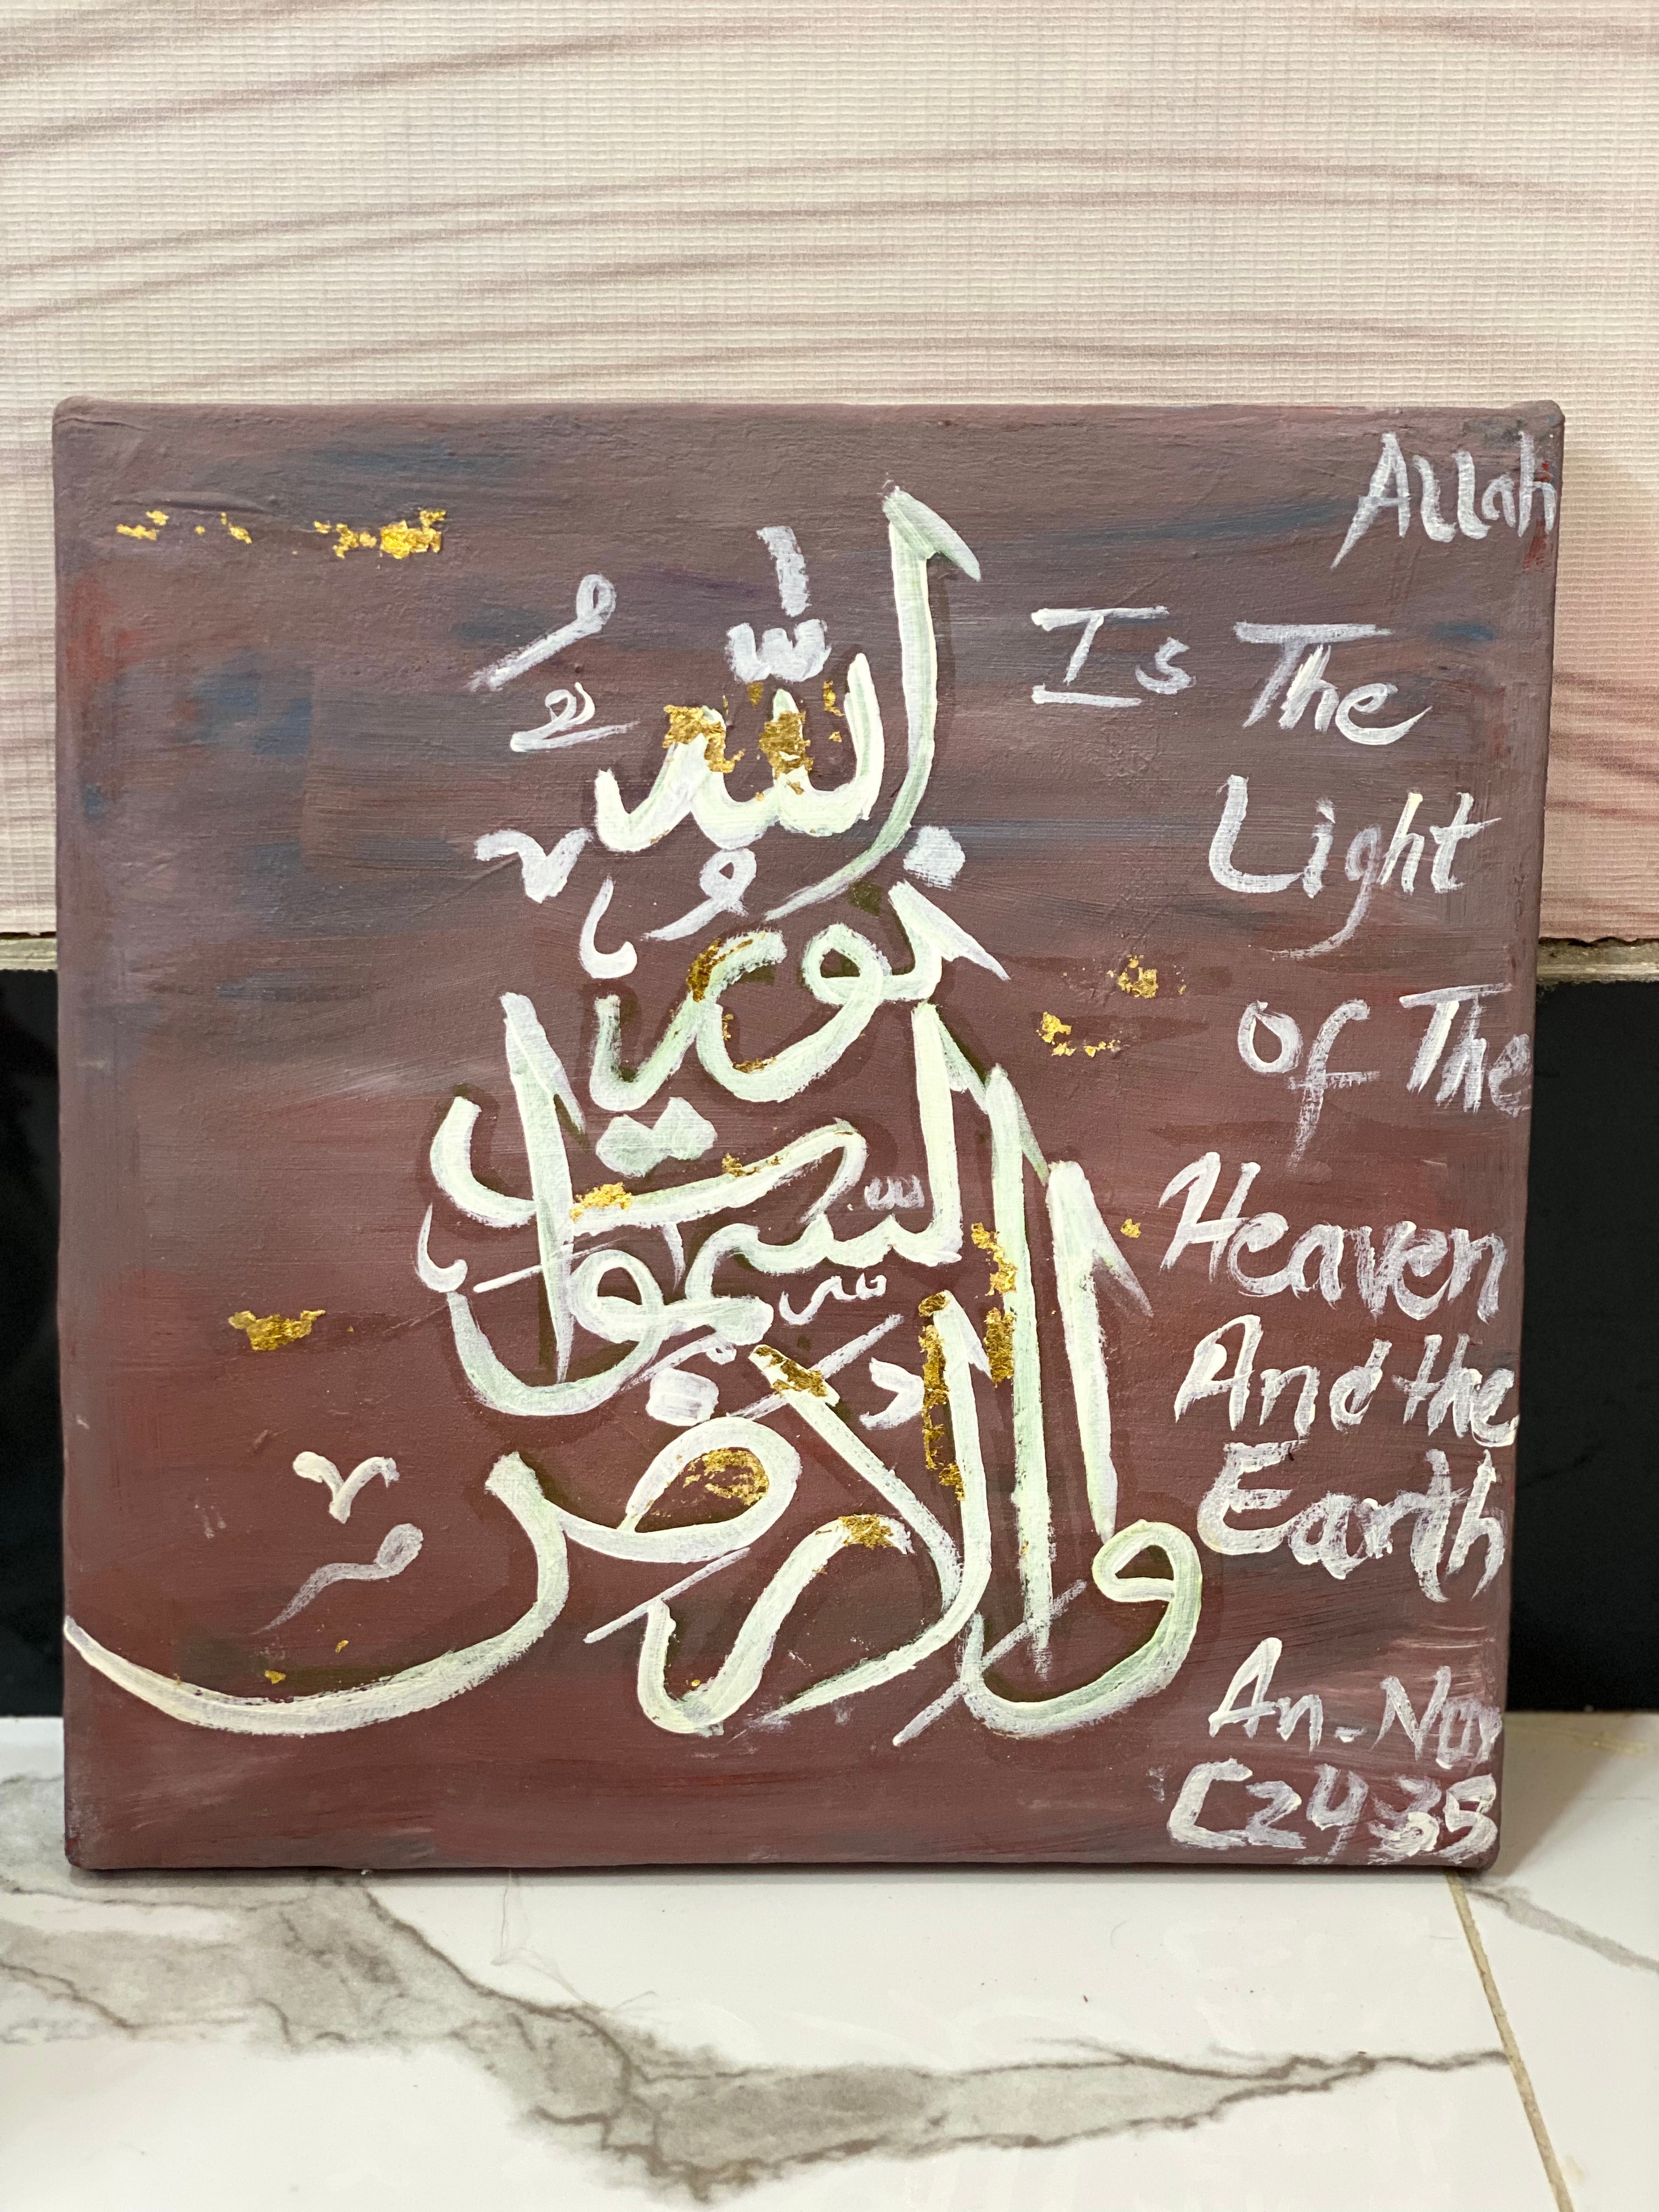 الله
نور
السموت
والارض
Allah
Is The
Light
of The
Heaven
And the
Earth
An-Nur
C24 35